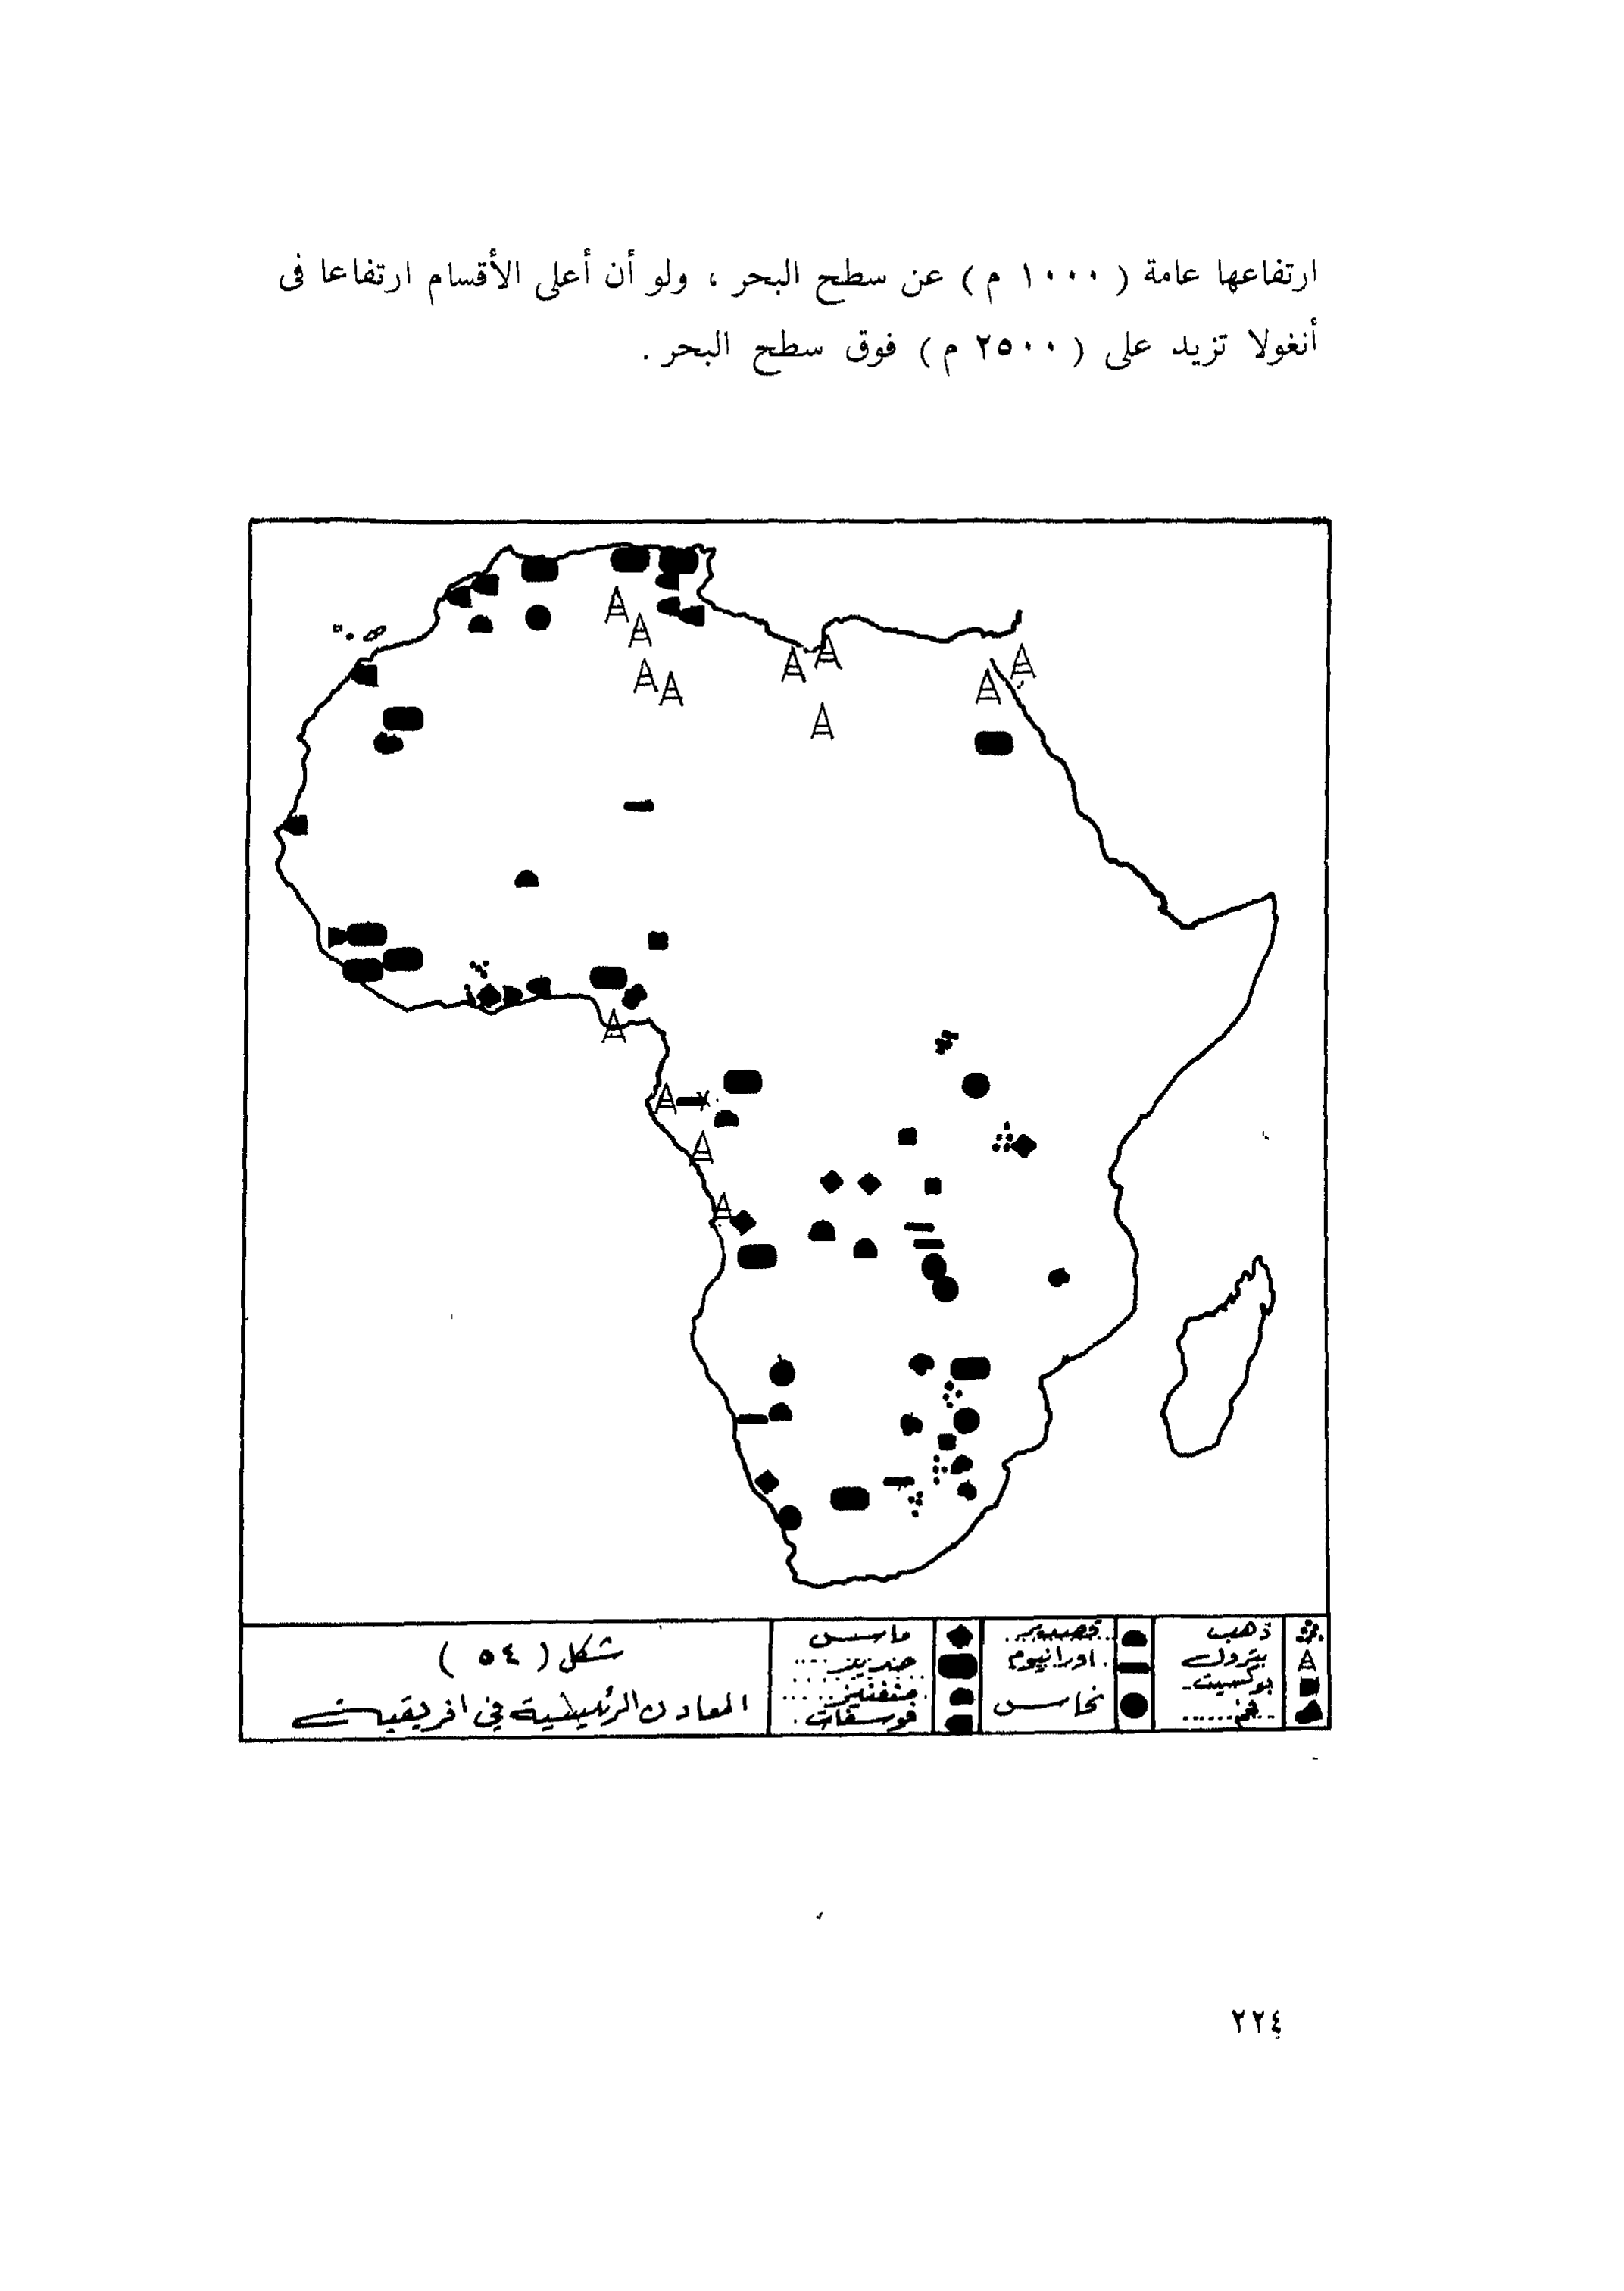 ارتفاعها عامة ( ١٠٠٠ م ) عن سطح البحر ، ولو أن أعلى الأقسام ارتفاعا فى
أنغولا تزيد على ( ٢٥٠٠ م ) فوق سطح البحر .
ذهب
بترول
بوكسيت
فحم
قصدير
اورانيوم
نحاس
ماس
حديد
منغنيز
فوسفات
شكل ( ٥٤ )
المعادن الرئيسية في افريقيت
٢٢٤